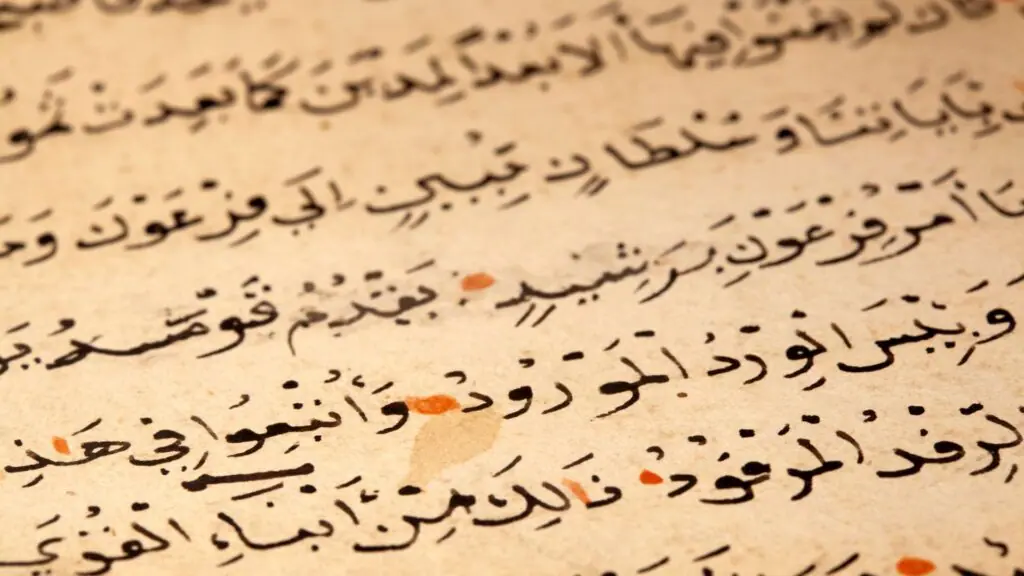 فِيهَا أَلَا بُعْدًا لِمَدْيَنَ كَمَا بَعِدَتْ ثَمُو
بِآيَاتِنَا وَسُلْطَانٍ مُبِينٍ إِلَى فِرْعَوْنَ وَمَ
أَمْرُ فِرْعَوْنَ بِرَشِيدٍ يَقْدُمُ قَوْمَهُ يَو
وَبِئْسَ الْوِرْدُ الْمَوْرُودُ وَأُتْبِعُوا فِي هَذِ
الرِّفْدُ الْمَرْفُودُ ذَالِكَ مِنْ أَنْبَاءِ الْقُرَى